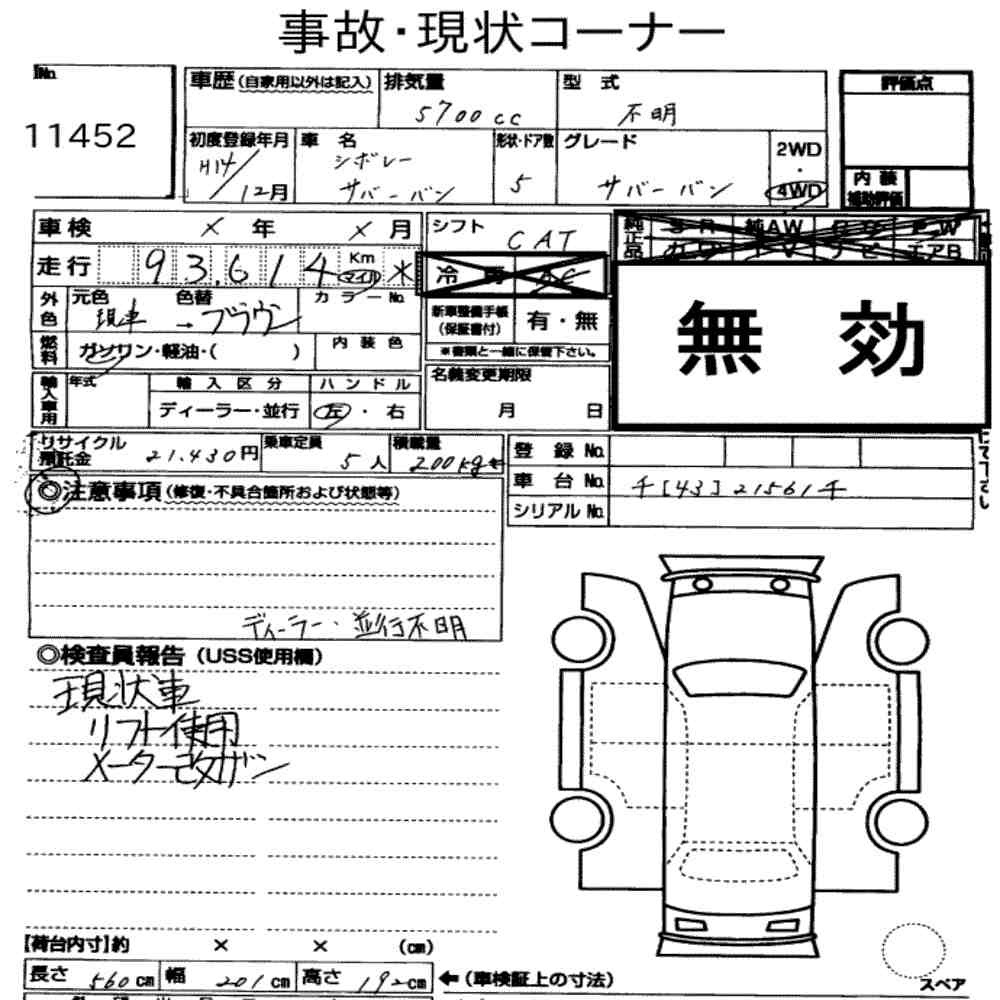 事故・現状コーナー
No.
11452
車歴 (自家用以外は記入)
排気量
5700cc
型式
不明
評価点
初度登録年月
H14/12月
車名
シボレー
サバーバン
形状・ドア数
5
グレード
サバーバン
2WD
・
4WD
内装
補助評価
車検 × 年 × 月
シフト
CAT
純正品
S R 純AW P W
T V ナビ エアB
走行 93,614 Km マイル *
外色
元色 現車 → 色替 ブラウン
カラーNo.
新車整備手帳
(保証書付)
有・無
※書類と一緒に保管下さい。
無効
燃料
ガソリン・軽油・( )
内装色
輸入車用
年式
輸入区分
ディーラー・並行
ハンドル
左・右
名義変更期限
月 日
リサイクル
預託金 21.430円
乗車定員
5人
積載量
200kg
登録No.
車台No. 千[43]21561千
シリアルNo.
◎注意事項 (修復・不具合箇所および状態等)
ディーラー・並行不明
◎検査員報告 (USS使用欄)
現状車
リフト使用
メーター改ザン
【荷台内寸】約 × × (cm)
長さ 560cm 幅 201cm 高さ 192cm ←(車検証上の寸法)
スペア